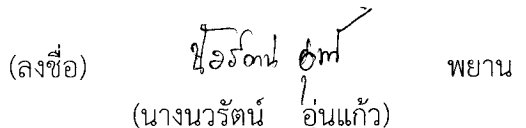 (ลงชื่อ) นวรัตน์ พยาน
(นางนวรัตน์ อุ่นแก้ว)